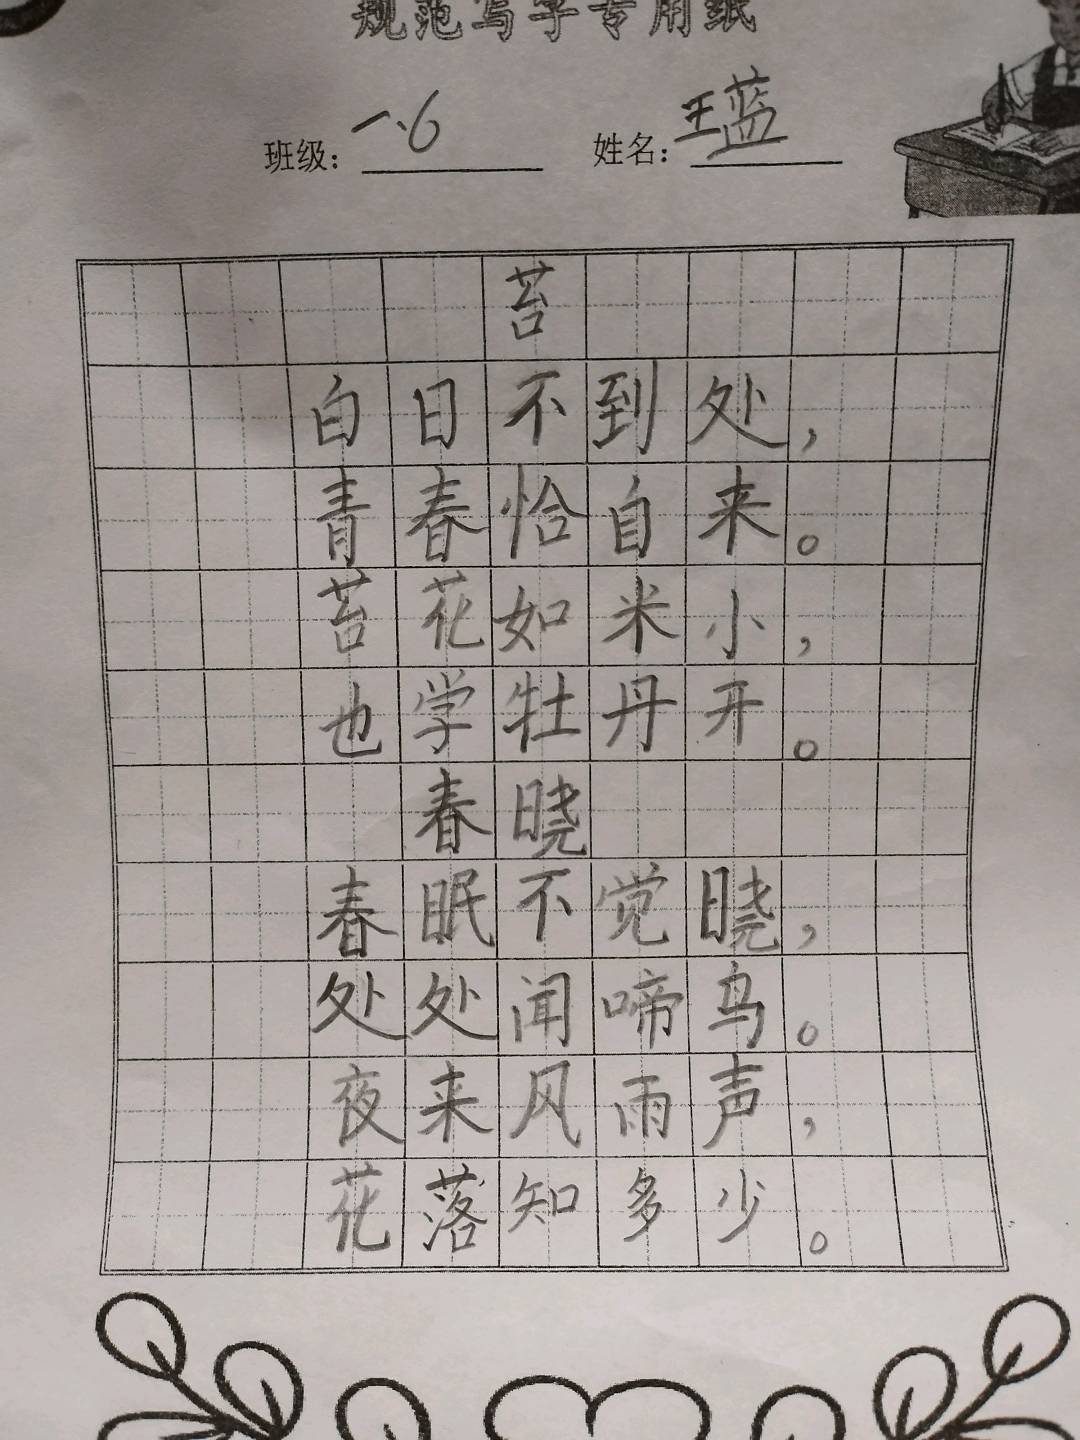 规范写字专用纸
班级：一.6 姓名：王蓝
苔
白日不到处，
青春恰自来。
苔花如米小，
也学牡丹开。
春晓
春眠不觉晓，
处处闻啼鸟。
夜来风雨声，
花落知多少。